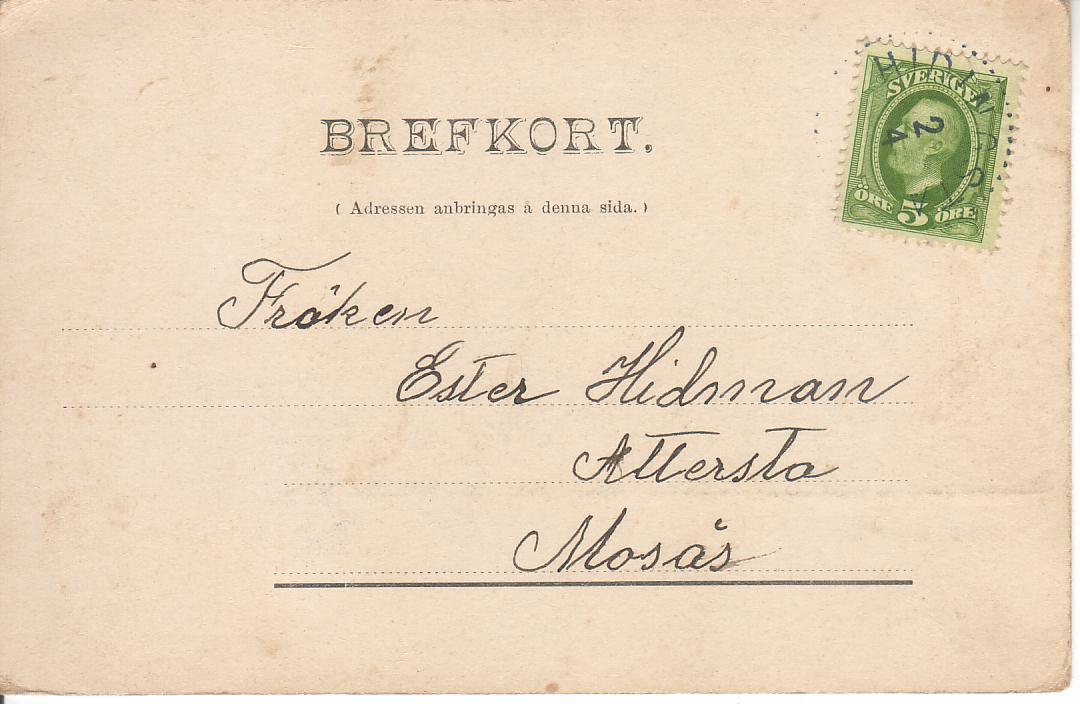 BREFKORT.
( Adressen anbringas å denna sida. )
SVERIGE
2
4
ÖRE 5 ÖRE
Fröken
Ester Hidman
Attersta
Mosås